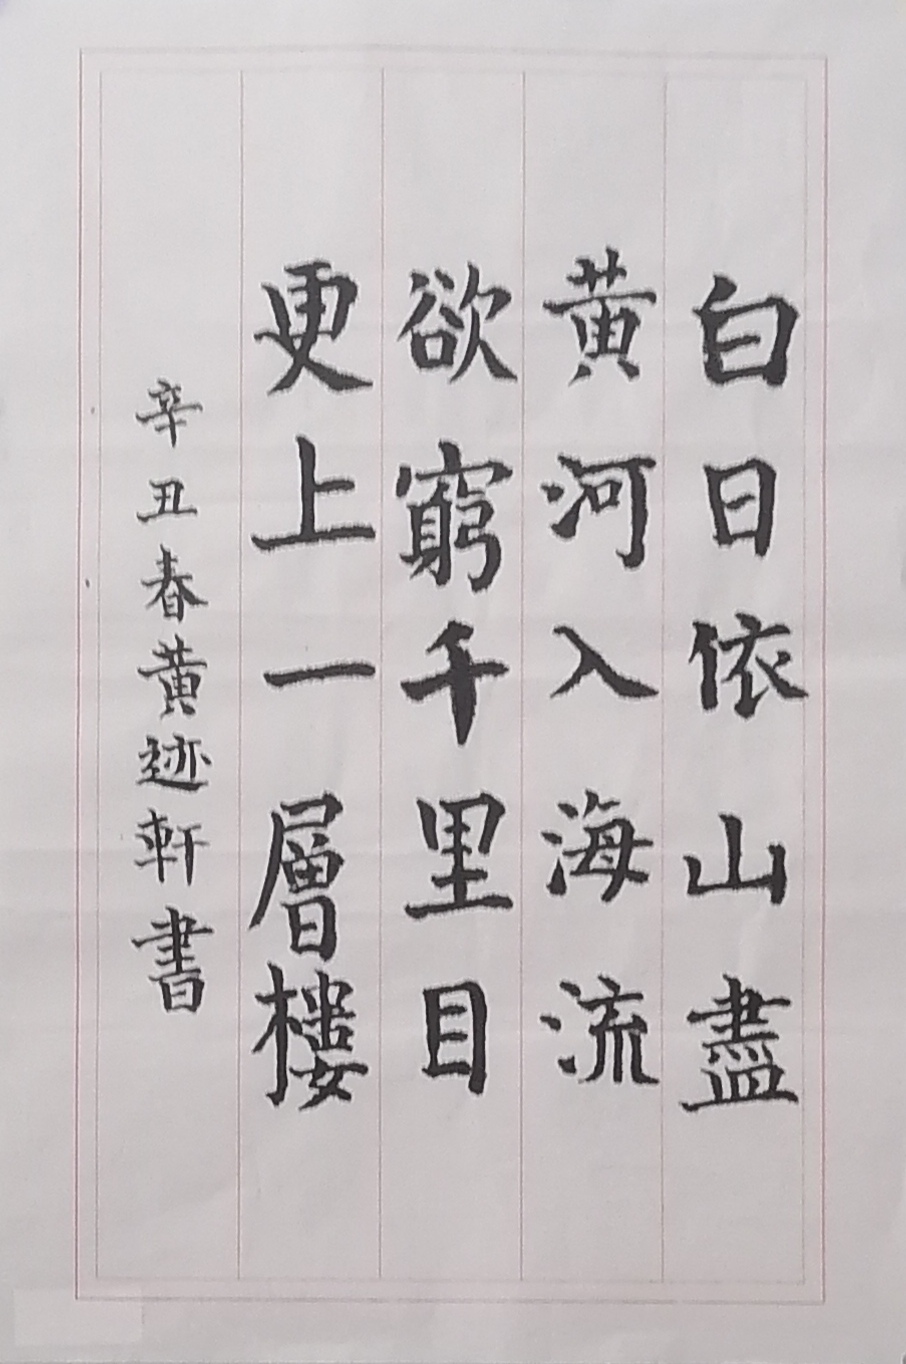 白日依山盡
黄河入海流
欲窮千里目
更上一層樓
辛丑春黄迹軒書